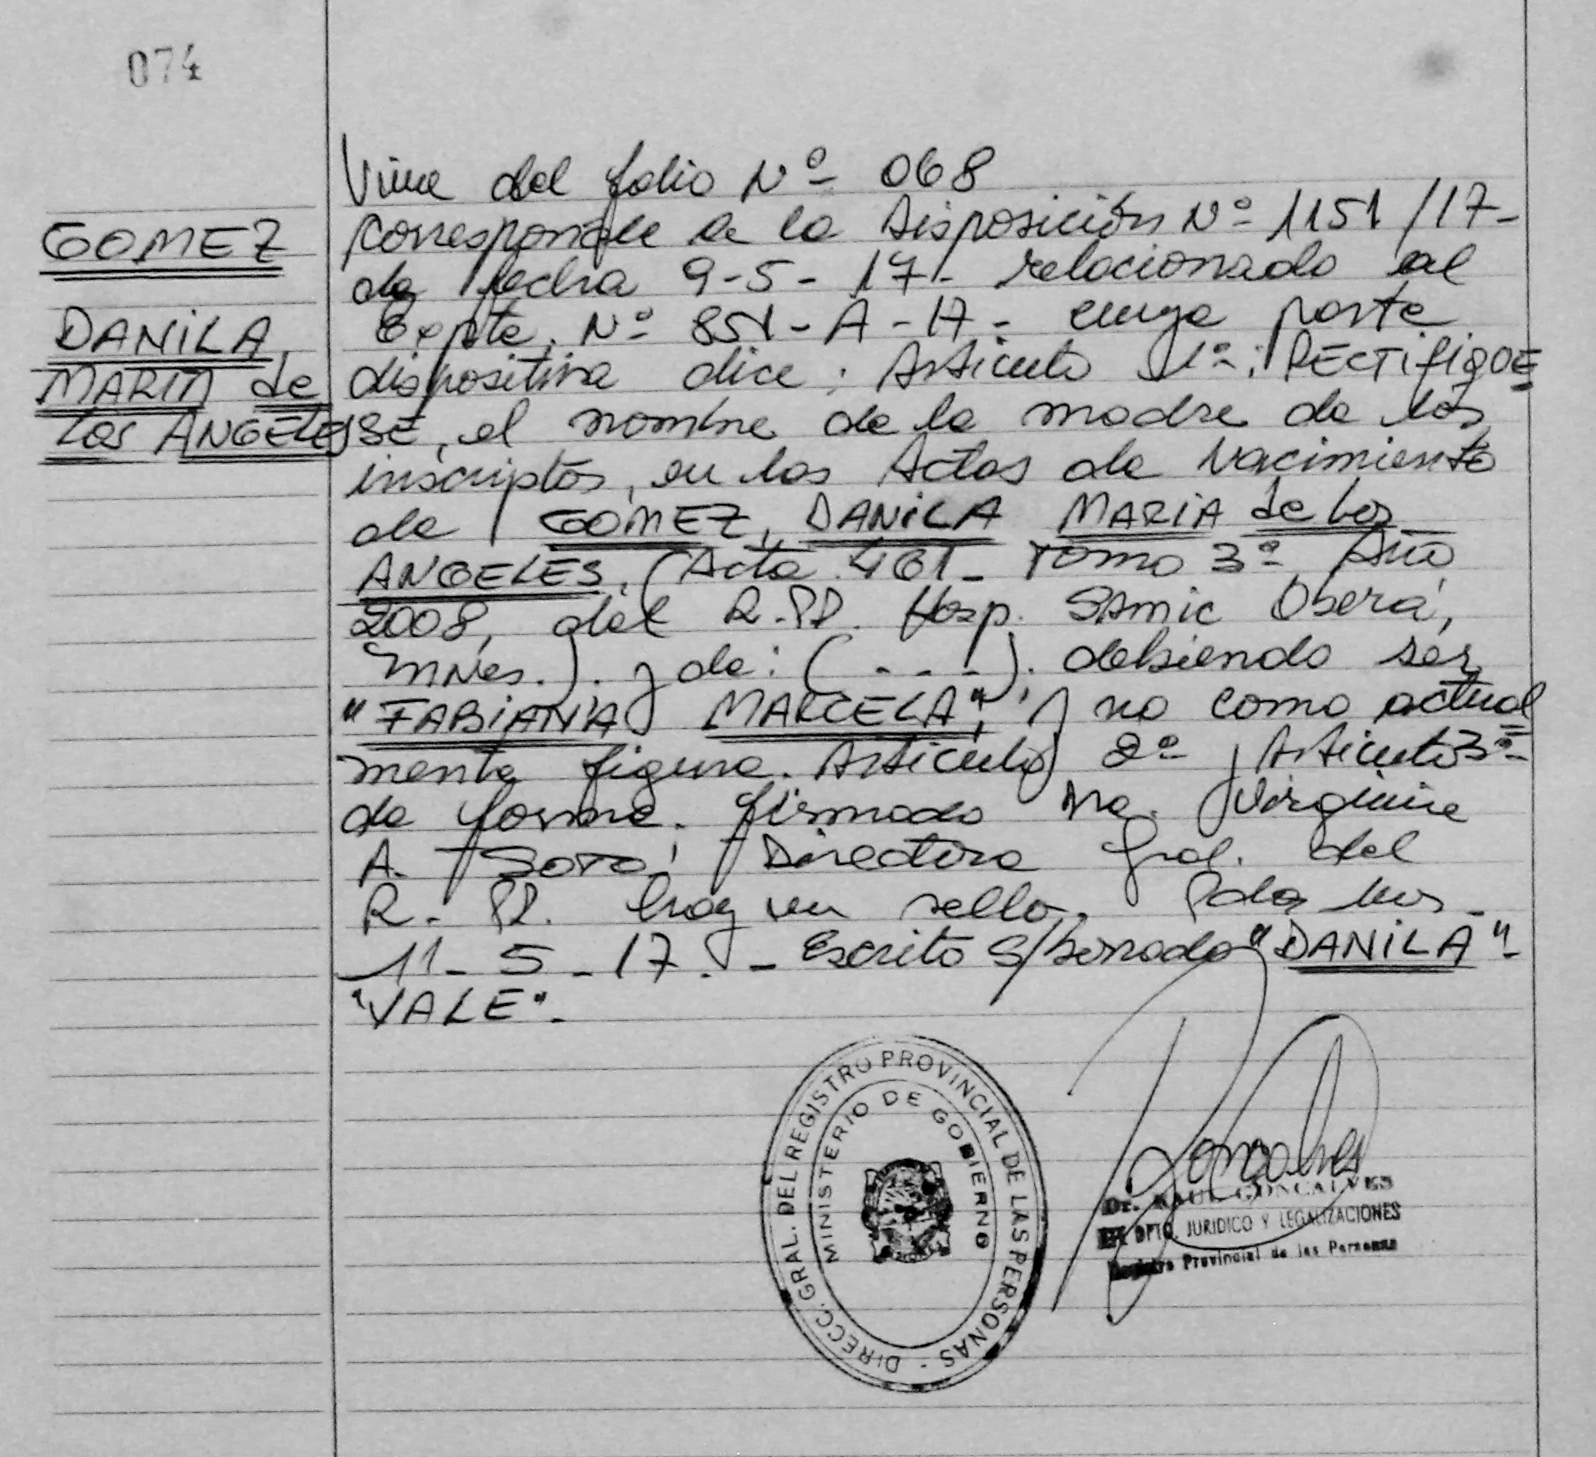 074
GOMEZ
DANILA
MARIA de
Los ANGELES
Viene del folio Nº 068
corresponde a la Disposición Nº 1151/17-
de fecha 9-5-17- relacionado al
Expte. Nº 851-A-17- cuya parte
dispositiva dice: Artículo 1º: RECTIFIQUE
SE, el nombre de la madre de los
inscriptos, en las Actas de Nacimiento
de GOMEZ, DANILA MARIA de Los
ANGELES, (Acta 461- Tomo 3º Año
2008, del R.PP. Hosp. SAmic Oberá,
Mnes.). y de: (- - -). debiendo ser
"FABIANA MARCELA", y no como actual
mente figura. Artículo 2º y Artículo 3º-
de forma. firmado Ma. Virginia
A. SOTO, Directora Gral. del
R.PP. hay un sello. Pdas Mns-
11-5-17.- Escrito S/borrado "DANILA"-
"VALE".
DIRECC. GRAL. DEL REGISTRO PROVINCIAL DE LAS PERSONAS -
MINISTERIO DE GOBIERNO
Dr. RAUL GONCALVES
DPTO. JURIDICO Y LEGALIZACIONES
Registro Provincial de las Personas